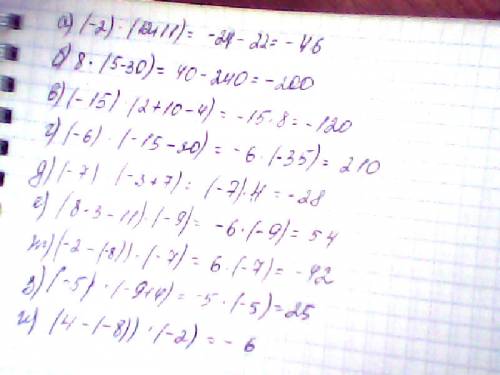 а) (-2) · (12+11) = -24 - 22 = -46
б) 8 · (5-30) = 40 - 240 = -200
в) (-15) (2+10-4) = -15·8 = -120
г) (-6) · (-15-20) = -6 · (-35) = 210
д) (-7) (-3+7) = (-7)·4 = -28
е) (8-3-11)·(-9) = -6·(-9) = 54
ж) (-2-(-8))·(-7) = 6·(-7) = -42
з) (-5) · (-9+4) = -5·(-5) = 25
и) (4-(-8)) · (-2) = - 6